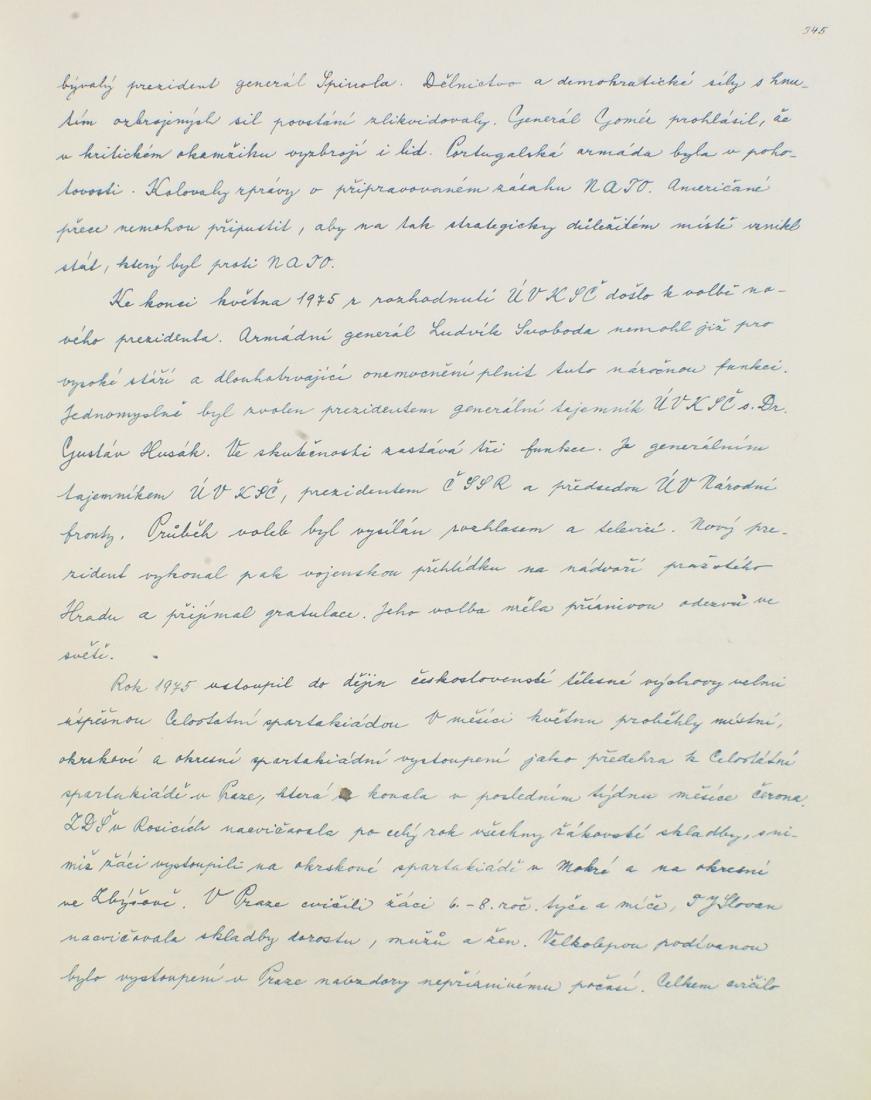 345
bývalý prezident generál Spinola. Dělnictvo a demokratické síly s hnu-
tím ozbrojených sil povstání zlikvidovaly. Generál Gomér prohlásil, že
v kritickém okamžiku vyzbrojí i lid. Portugalská armáda byla v poho-
tovosti. Kolovaly zprávy o připravovaném zásahu NATO. Američané
přece nemohou připustit, aby na tak strategicky důležitém místě vznikl
stát, který byl proti NATO.
Ke konci května 1975 z rozhodnutí ÚV KSČ došlo k volbě no-
vého prezidenta. Armádní generál Ludvík Svoboda nemohl již pro
vysoké stáří a dlouhotrvající onemocnění plnit tuto náročnou funkci.
Jednomyslně byl zvolen prezidentem generální tajemník ÚV KSČ s. Dr.
Gustáv Husák. Ve skutečnosti zastává tři funkce. Je generálním
tajemníkem ÚV KSČ, prezidentem ČSSR a předsedou ÚV Národní
fronty. Průběh voleb byl vysílán rozhlasem a televizí. Nový pre-
zident vykonal pak vojenskou přehlídku na nádvoří pražského
Hradu a přijímal gratulace. Jeho volba měla příznivou odezvu ve
světě.
Rok 1975 vstoupil do dějin československé tělesné výchovy velmi
úspěšnou Celostátní spartakiádou V měsíci květnu proběhly místní,
okrskové a okresní spartakiádní vystoupení jako předehra k Celostátní
spartakiádě v Praze, která konala v posledním týdnu měsíce června.
ZDŠ v Rosicích nacvičovala po celý rok všechny žákovské skladby, s ni-
miž žáci vystoupili na okrskové spartakiádě v Mokré a na okresní
ve Zbýšově. V Praze cvičili žáci 6.-8. roč. tyče a míče, TJ Slovan
nacvičovala skladby dorostu, mužů a žen. Velkolepou podívanou
bylo vystoupení v Praze navzdory nepříznivému počasí. Celkem cvičilo